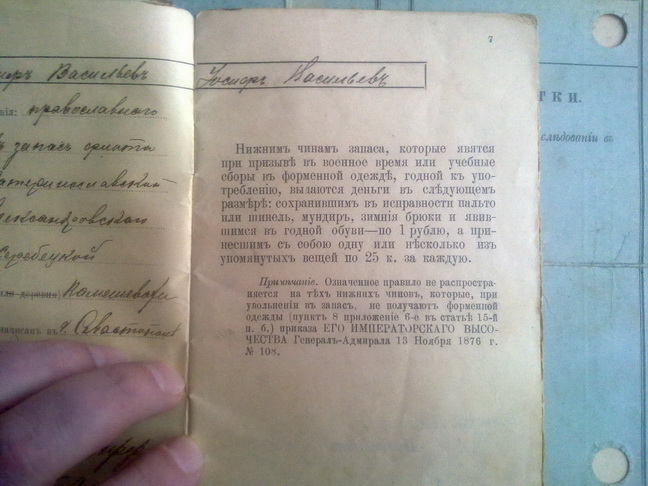 Васильевъ
православнаго
въ запасъ флота
Екатеринославской
Александровской
г. Севастополь
7
Іосифъ Васильевъ
Нижнимъ чинамъ запаса, которые явятся
при призывѣ въ военное время или учебные
сборы въ форменной одеждѣ, годной къ упо-
требленію, выдаются деньги въ слѣдующемъ
размѣрѣ: сохранившимъ въ исправности пальто
или шинель, мундиръ, зимнія брюки и явив-
шимся въ годной обуви—по 1 рублю, а при-
несшимъ съ собою одну или нѣсколько изъ
упомянутыхъ вещей по 25 к. за каждую.
Примѣчаніе. Означенное правило не распростра-
няется на тѣхъ нижнихъ чиновъ, которые, при
увольненіи въ запасъ, не получаютъ форменной
одежды (пунктъ 8 приложеніе 6-е въ статьѣ 15-й
п. б,) приказа ЕГО ИМПЕРАТОРСКАГО ВЫСО-
ЧЕСТВА Генералъ-Адмирала 13 Ноября 1876 г.
№ 108.
ТКИ.
слѣдованіи въ